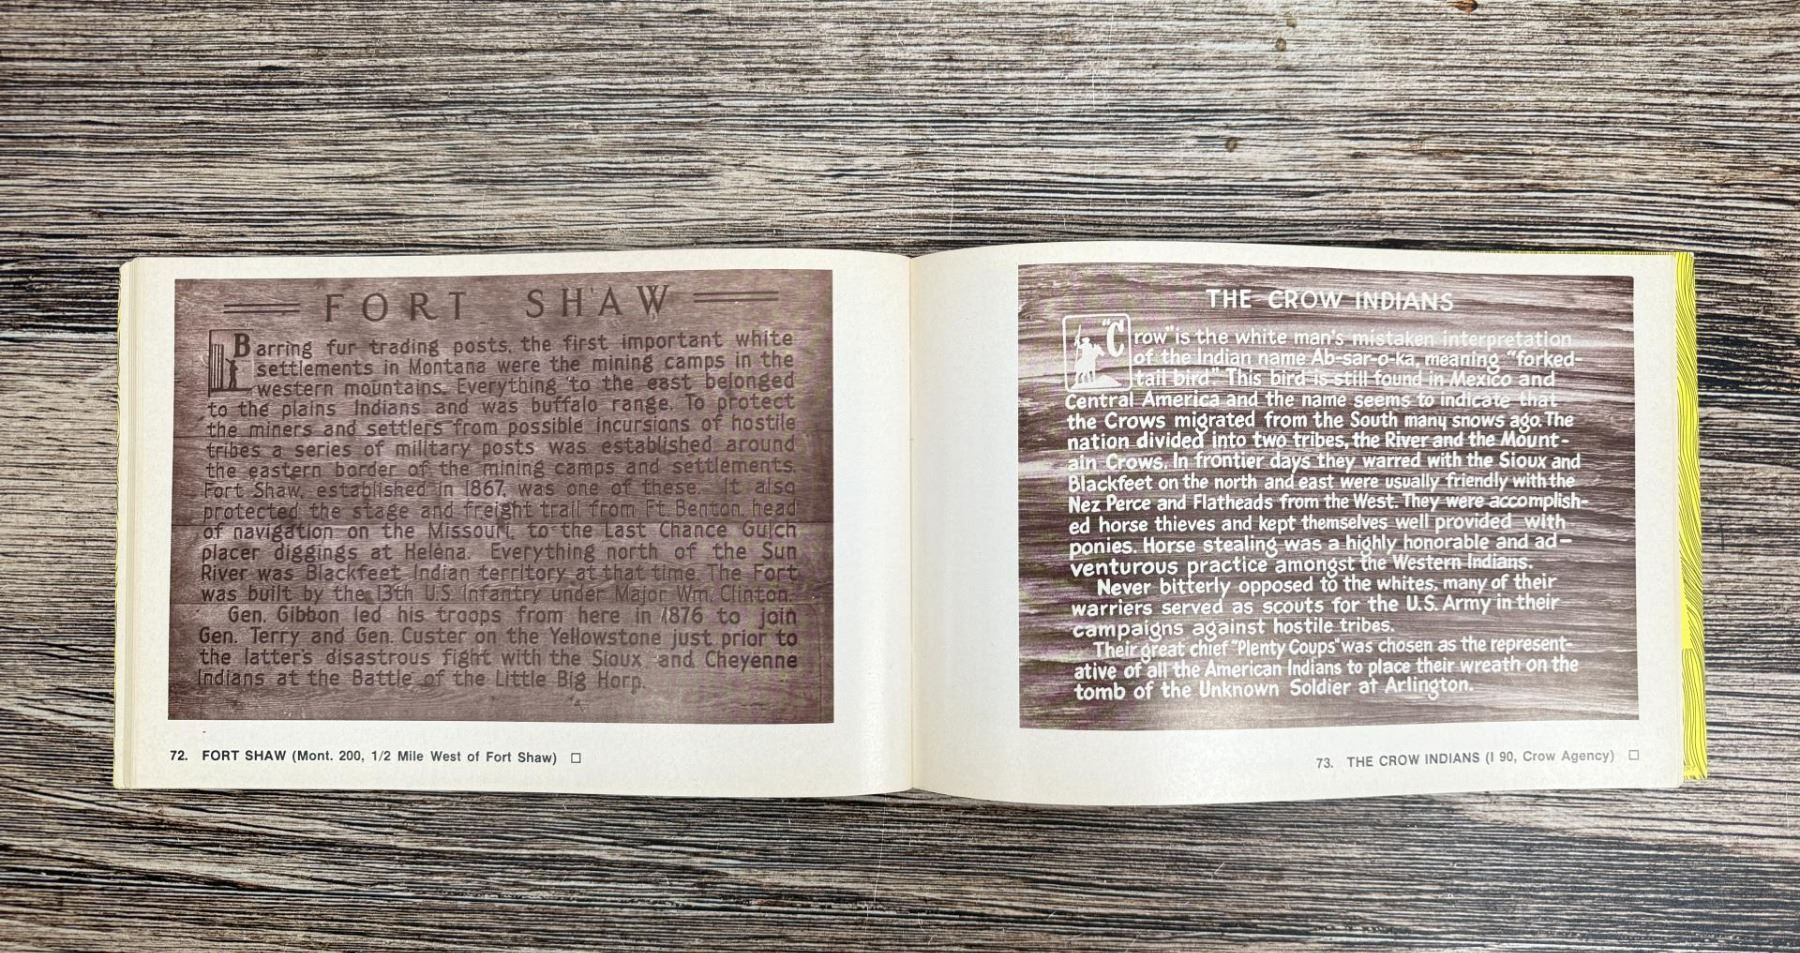 FORT SHAW
Barring fur trading posts, the first important white
settlements in Montana were the mining camps in the
western mountains. Everything to the east belonged
to the plains Indians and was buffalo range. To protect
the miners and settlers from possible incursions of hostile
tribes a series of military posts was established around
the eastern border of the mining camps and settlements.
Fort Shaw, established in 1867, was one of these. It also
protected the stage and freight trail from Ft. Benton, head
of navigation on the Missouri, to the Last Chance Gulch
placer diggings at Helena. Everything north of the Sun
River was Blackfeet Indian territory at that time. The Fort
was built by the 13th U.S. Infantry under Major Wm. Clinton.
Gen. Gibbon led his troops from here in 1876 to join
Gen. Terry and Gen. Custer on the Yellowstone just prior to
the latter's disastrous fight with the Sioux and Cheyenne
Indians at the Battle of the Little Big Horn.
72. FORT SHAW (Mont. 200, 1/2 Mile West of Fort Shaw) □
THE CROW INDIANS
"Crow" is the white man's mistaken interpretation
of the Indian name Ab-sar-o-ka, meaning "forked-
tail bird." This bird is still found in Mexico and
Central America and the name seems to indicate that
the Crows migrated from the South many snows ago. The
nation divided into two tribes, the River and the Mount-
ain Crows. In frontier days they warred with the Sioux and
Blackfeet on the north and east were usually friendly with the
Nez Perce and Flatheads from the West. They were accomplish-
ed horse thieves and kept themselves well provided with
ponies. Horse stealing was a highly honorable and ad-
venturous practice amongst the Western Indians.
Never bitterly opposed to the whites, many of their
warriers served as scouts for the U.S. Army in their
campaigns against hostile tribes.
Their great chief "Plenty Coups" was chosen as the represent-
ative of all the American Indians to place their wreath on the
tomb of the Unknown Soldier at Arlington.
73. THE CROW INDIANS (I 90, Crow Agency) □